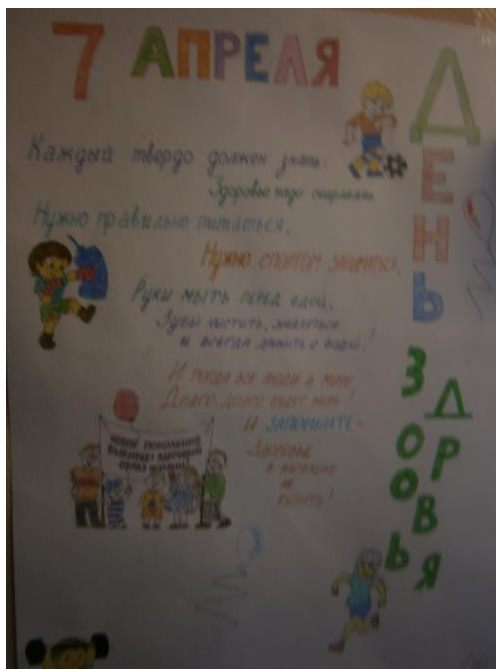 7 АПРЕЛЯ
ДЕНЬ
ЗДОРОВЬЯ
Каждый твердо должен знать.
Здоровье надо сохранять.
Нужно правильно питаться,
Нужно спортом заниматься,
Руки мыть перед едой,
Зубы чистить, закаляться
и всегда дружить с водой!
И тогда все люди в мире
Долго, долго будут жить!
И ЗАПОМНИТЕ-
Здоровье
в магазине
не
купить!
НОВОЕ ПОКОЛЕНИЕ
ВЫБИРАЕТ ЗДОРОВЫЙ
ОБРАЗ ЖИЗНИ